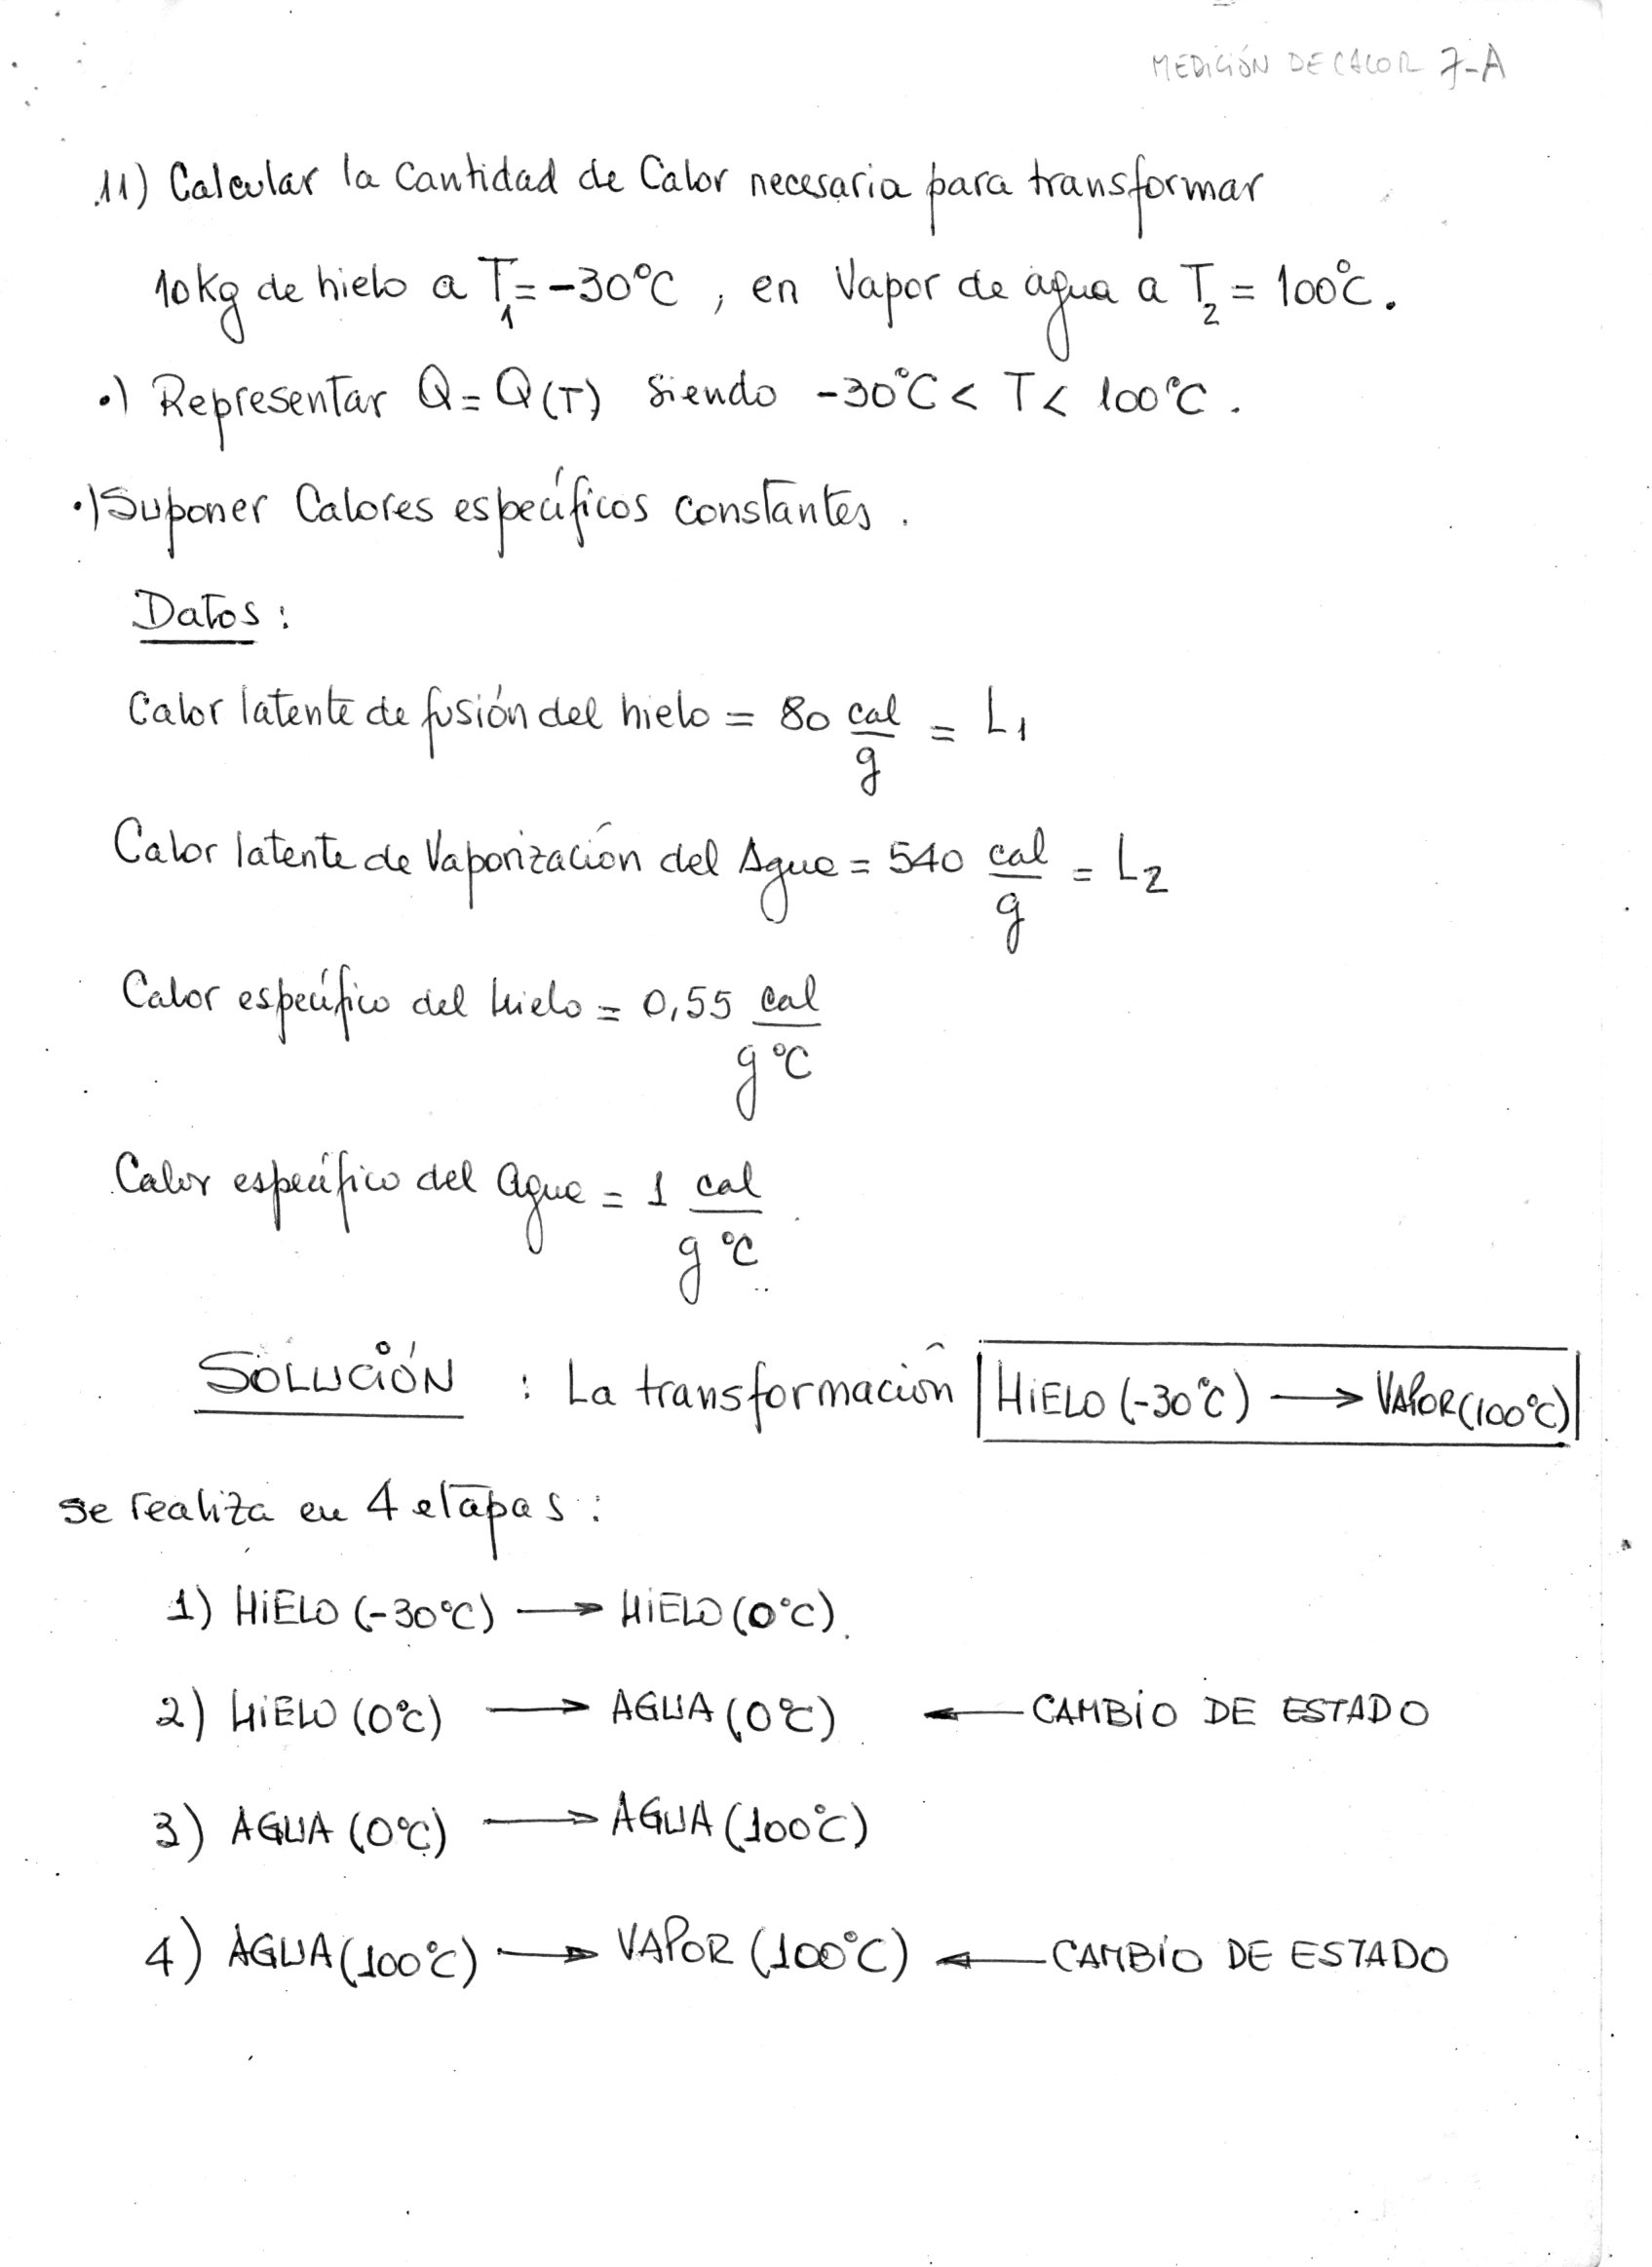 MEDICIÓN DE CALOR 7-A
11) Calcular la Cantidad de Calor necesaria para transformar
10kg de hielo a T₁= -30°C , en Vapor de agua a T₂ = 100°C.
•) Representar Q = Q(T) siendo -30°C < T < 100°C.
•) Suponer Calores específicos constantes.
Datos:
Calor latente de fusión del hielo = 80 cal/g = L₁
Calor latente de Vaporización del Agua = 540 cal/g = L₂
Calor específico del hielo = 0,55 cal/g °C
Calor específico del agua = 1 cal/g °C
SOLUCIÓN : La transformación HIELO (-30°C) → VAPOR (100°C)
se realiza en 4 etapas:
1) HIELO (-30°C) → HIELO (0°C).
2) HIELO (0°C) → AGUA (0°C) ← CAMBIO DE ESTADO
3) AGUA (0°C) → AGUA (100°C)
4) AGUA (100°C) → VAPOR (100°C) ← CAMBIO DE ESTADO